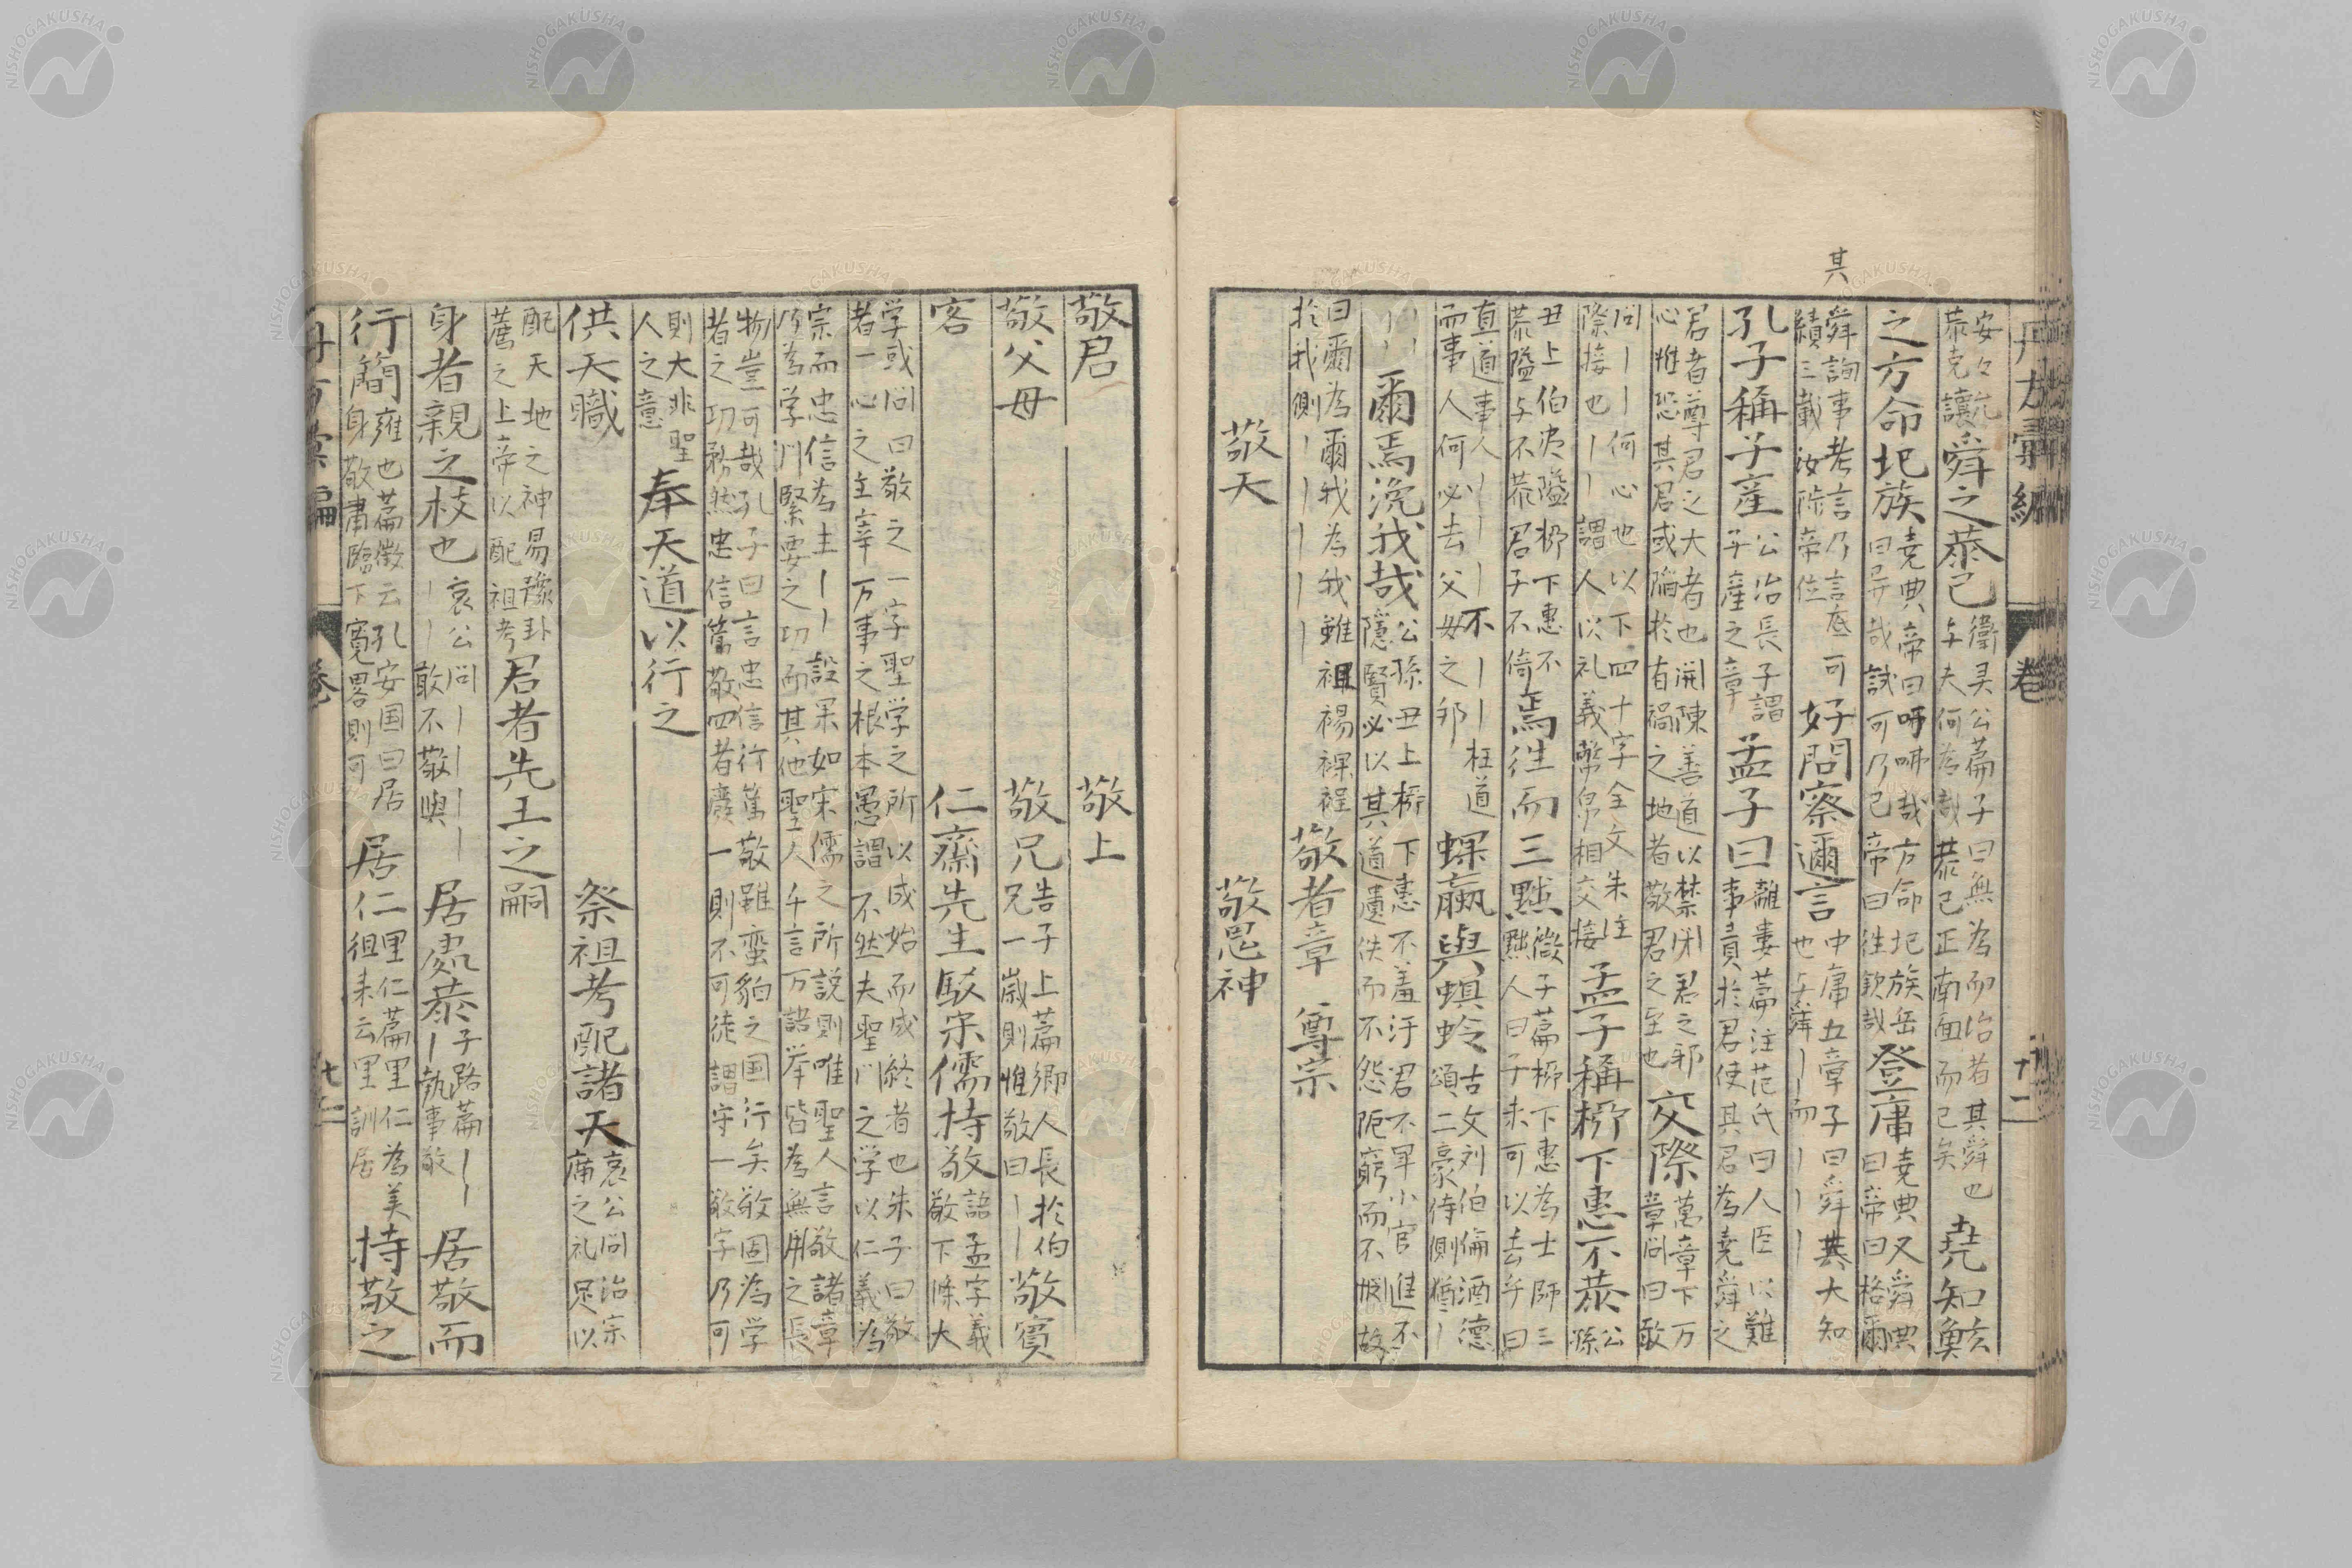 其
安々允恭克讓 舜之恭己 衛灵公篇子曰無為而治者其舜也与夫何為哉恭己正南面而已矣 堯知鮌
之方命圯族 堯典帝曰吁咈哉方命圯族岳曰异哉試可乃已帝曰往欽哉 登庸 堯典又舜典曰帝曰格爾
舜詢事考言乃言底可績三載汝陟帝位 好問察邇言 中庸五章子曰舜其大知也与舜丨丨而丨丨丨
孔子稱子產 公冶長子謂子產之章 孟子曰 離婁篇注范氏曰人臣以難事責於君使其君為堯舜之
君者尊君之大者也開陳善道以禁閉君之邪心惟恐其君或陥於有禍之地者敬君之至也 交際 萬章下万章問曰敢
問丨丨何心也以下四十字全文朱注際接也丨丨謂人以礼義幣帛相交接 孟子稱桺下惠不恭 公孫
丑上伯夷隘桺下惠不恭隘与不恭君子不倚 焉往而三黜 微子篇桺下惠為士師三黜人曰子未可以去乎曰
直道事人丨丨丨不丨丨枉道而事人何必去父母之邦 蜾蠃與螟蛉 古文刘伯倫酒德頌二豪侍側猶丨
丨丨 爾焉浼我哉 公孫丑上桺下惠不羞汙君不卑小官進不隱賢必以其道遺佚而不怨阨窮而不憫故
曰爾為爾我為我雖袒裼裸裎於我側丨丨丨丨丨 敬者章 尊宗
敬天 敬鬼神
卷 十二
敬君 敬上
敬父母 敬兄 告子上篇郷人長於伯兄一歲則惟敬曰丨丨 敬賓
客 仁齋先生駁宋儒持敬 語孟字義敬下條大
学或問曰敬之一字聖学之所以成始而成終者也朱子曰敬者一心之主宰万事之根本愚謂不然夫聖门之学以仁義為
宗而忠信為主丨丨設果如宋儒之所説則唯聖人言敬諸章乃為学门緊要之功而其他聖人千言万語举皆為無用之長
物豈可哉孔子曰言忠信行篤敬雖蛮貊之国行矣敬固為学者之功務然忠信篤敬四者廃一則不可徒謂守一敬字乃可
則大非聖人之意 奉天道以行之
供天職 祭祖考配諸天 哀公問治宗庿之礼足以
配天地之神易豫卦薦之上帝以配祖考 君者先王之嗣
身者親之枝也 哀公問丨丨丨丨丨丨敢不敬與 居處恭 子路篇丨丨丨執事敬 居敬而
行簡 雍也篇徵云孔安国曰居身敬肅臨下寬畧則可 居仁 里仁篇里仁為美徂来云里訓居 持敬之